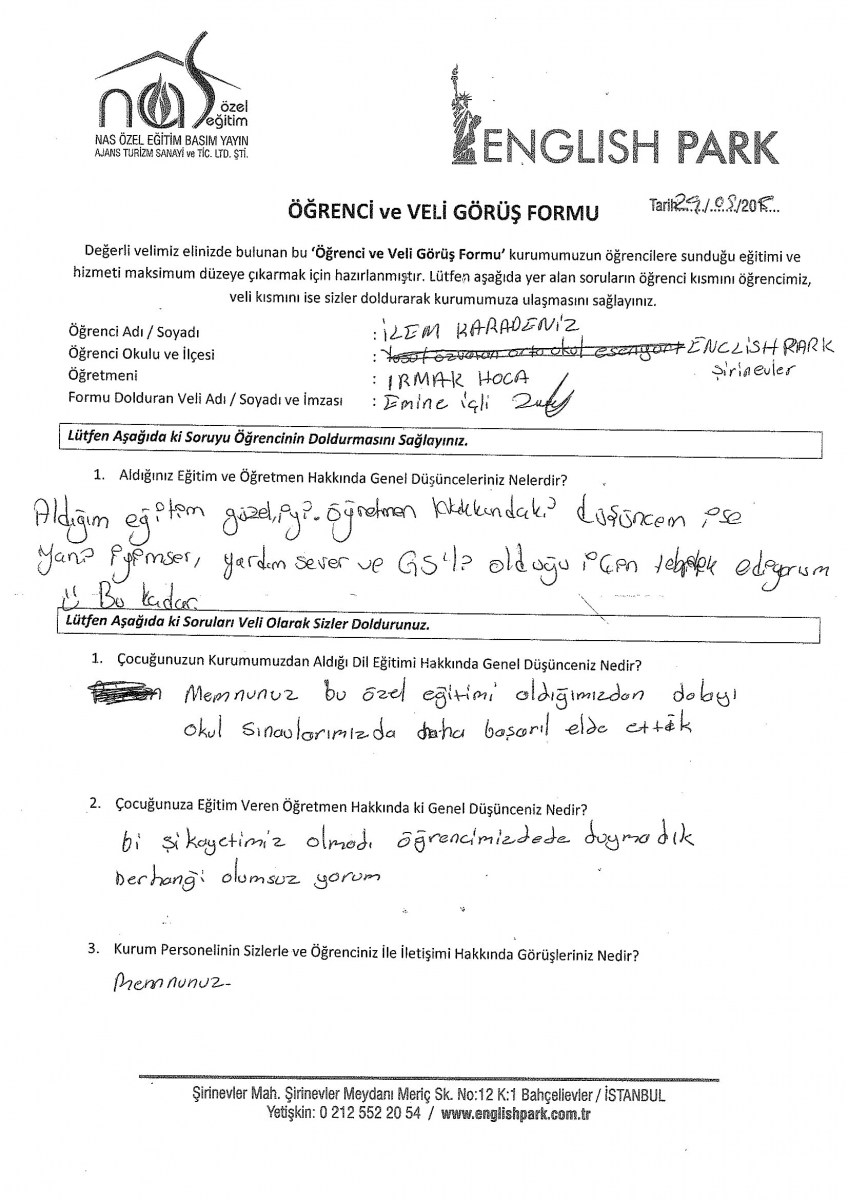 nas özel eğitim
NAS ÖZEL EĞİTİM BASIM YAYIN
AJANS TURİZM SANAYİ ve TİC. LTD. ŞTİ.
ENGLISH PARK
ÖĞRENCİ ve VELİ GÖRÜŞ FORMU
Tarih 29./.05./2015...
Değerli velimiz elinizde bulunan bu 'Öğrenci ve Veli Görüş Formu' kurumumuzun öğrencilere sunduğu eğitimi ve
hizmeti maksimum düzeye çıkarmak için hazırlanmıştır. Lütfen aşağıda yer alan soruların öğrenci kısmını öğrencimiz,
veli kısmını ise sizler doldurarak kurumumuza ulaşmasını sağlayınız.
Öğrenci Adı / Soyadı : İLEM KARADENİZ
Öğrenci Okulu ve İlçesi : ENGLİSH PARK
Şirinevler
Öğretmeni : IRMAK HOCA
Formu Dolduran Veli Adı / Soyadı ve İmzası : Emine içli
Lütfen Aşağıda ki Soruyu Öğrencinin Doldurmasını Sağlayınız.
1. Aldığınız Eğitim ve Öğretmen Hakkında Genel Düşünceleriniz Nelerdir?
Aldığım eğitem güzel, iyi. öğretmen Hakkındaki düşüncem ise
Yani iyemser, yardım sever ve GS'li olduğu için tebrik ediyorum
Bu kadar.
Lütfen Aşağıda ki Soruları Veli Olarak Sizler Doldurunuz.
1. Çocuğunuzun Kurumumuzdan Aldığı Dil Eğitimi Hakkında Genel Düşünceniz Nedir?
Memnunuz bu özel eğitimi aldığımızdan dolayı
okul sınavlarımızda daha başarıl elde ettik
2. Çocuğunuza Eğitim Veren Öğretmen Hakkında ki Genel Düşünceniz Nedir?
bi şikayetimiz olmadı öğrencimizdede duymadık
herhangi olumsuz yorum
3. Kurum Personelinin Sizlerle ve Öğrenciniz İle İletişimi Hakkında Görüşleriniz Nedir?
memnunuz-
Şirinevler Mah. Şirinevler Meydanı Meriç Sk. No:12 K:1 Bahçelievler / İSTANBUL
Yetişkin: 0 212 552 20 54 / www.englishpark.com.tr